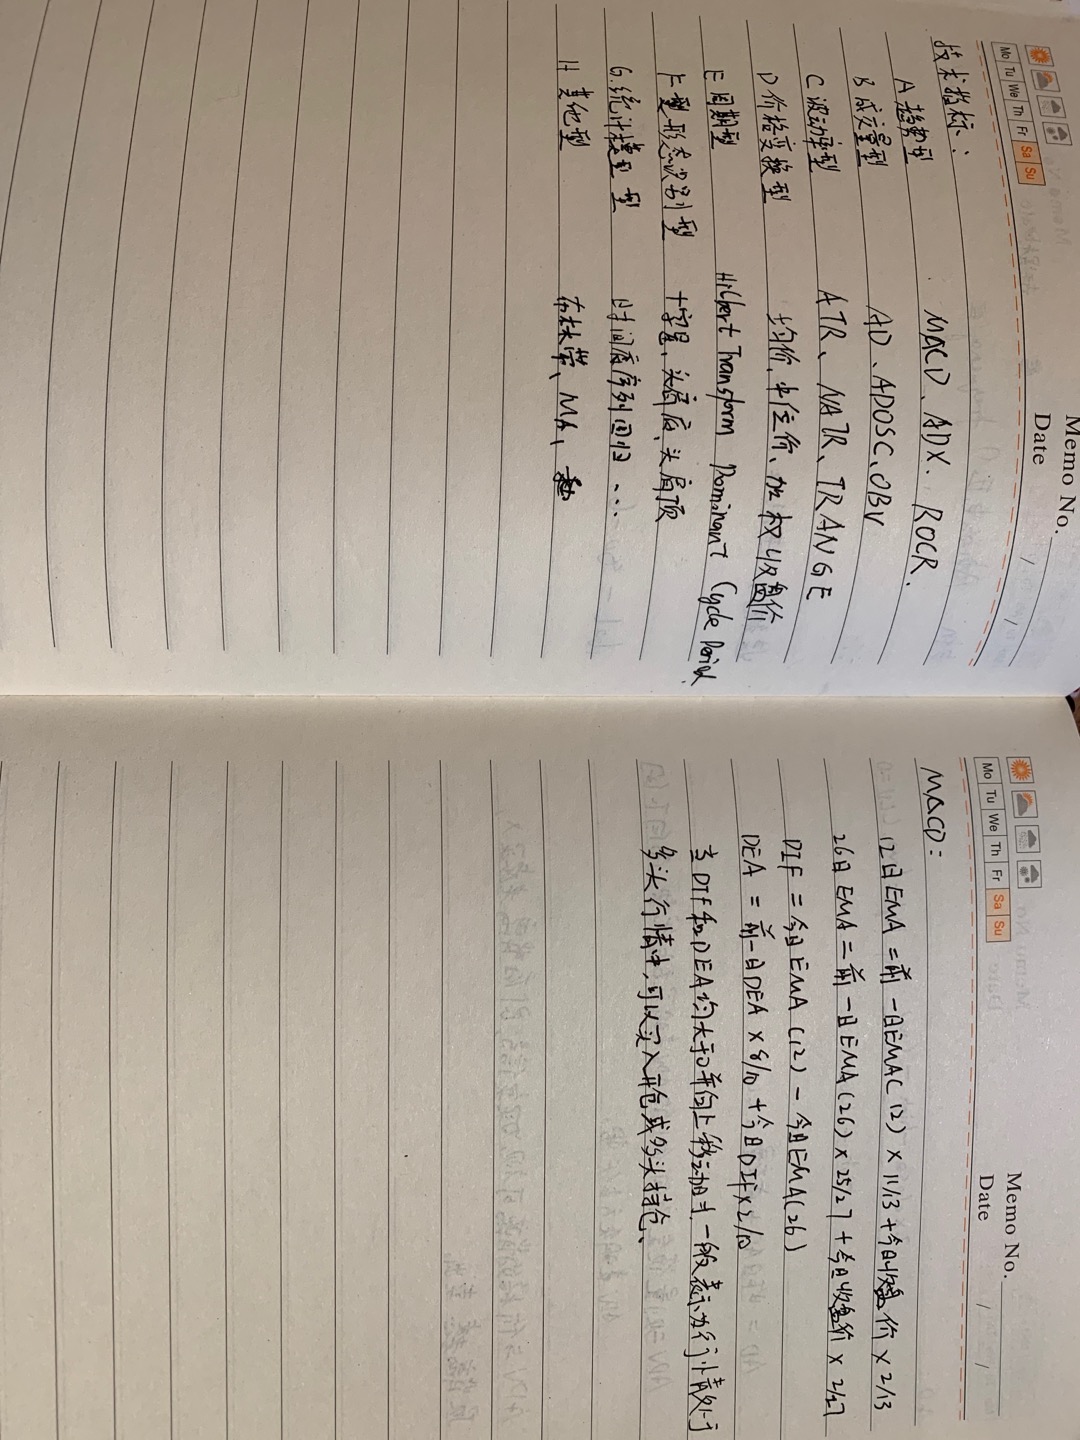 Memo No.
Mo Tu We Th Fr Sa Su
Date / /
技术指标：
A 趋势型 MACD、ADX、ROCR.
B 成交量型 AD、ADOSC、OBV
C 波动率型 ATR、NATR、TRANGE
D 价格变换型 均价、中位价、加权收盘价
E 周期型 Hilbert Transform Dominant Cycle Period
F 形态识别型 十字星、头肩底、头肩顶
G 统计模型型 时间序列回归 ...
H 其他型 布林带、MA、
Memo No.
Mo Tu We Th Fr Sa Su
Date / /
MACD：
12日EMA = 前一日EMA(12) × 11/13 + 今日收盘价 × 2/13
26日EMA = 前一日EMA(26) × 25/27 + 今日收盘价 × 2/27
DIF = 今日EMA(12) - 今日EMA(26)
DEA = 前一日DEA × 8/10 + 今日DIF × 2/10
当DIF和DEA均大于0并向上移动时，一般表示为行情处于
多头行情中，可以买入开仓或多头持仓、